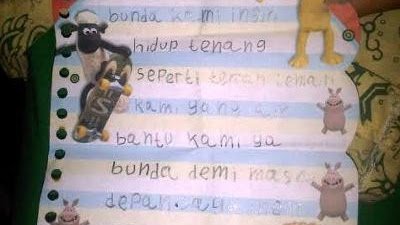 bunda kami ingin
hidup tenang
seperti teman teman
kami yang
bantu kami ya
bunda demi masa
depan